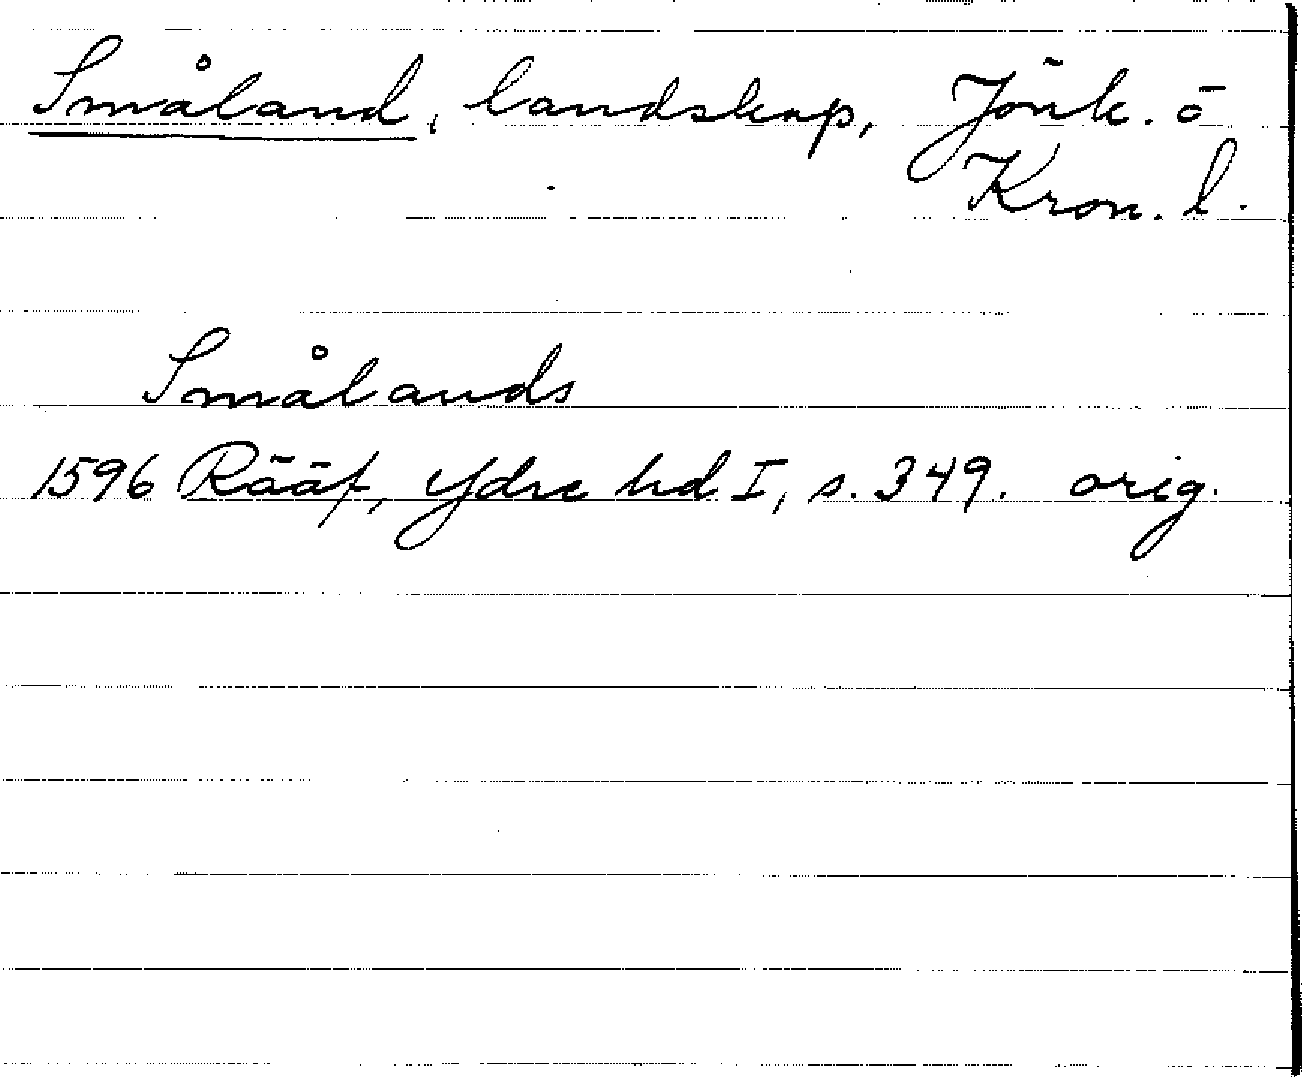 Småland, landskap, Jönk. ō
Kron. l.
Smålands
1596 Rääf, Ydre hd I, s. 349. orig.